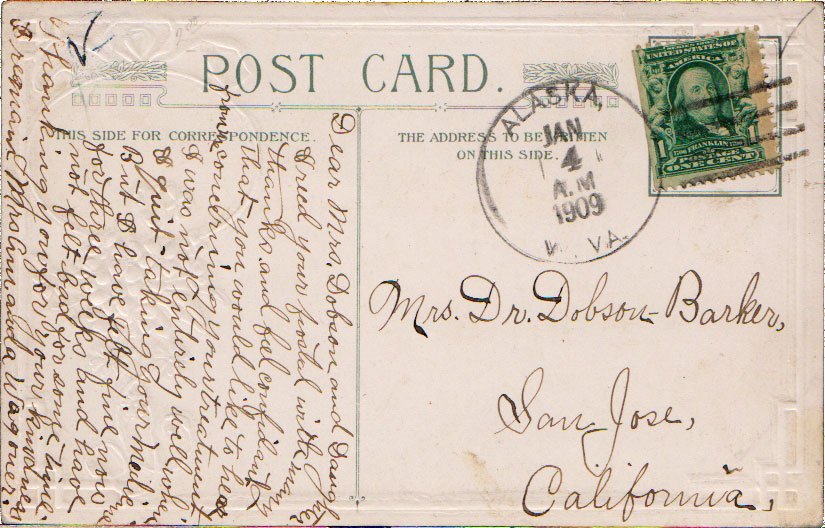 POST CARD.
THIS SIDE FOR CORRESPONDENCE.
THE ADDRESS TO BE WRITTEN
ON THIS SIDE.
ALASKA,
JAN
4
A.M
1909
W. VA.
UNITED STATES OF
AMERICA
1706 FRANKLIN 1790
1 POSTAGE 1
ONE CENT
Mrs. Dr. Dobson-Barker,
San Jose,
California,
Dear Mrs. Dobson and Daughter
I recd your postal with many
thanks, and fel confident
that you would like to hear
from me concerning your treatment
I was not entirely well when
I quit taking your Medicine
But I have felt fine now
for three weeks and have
not felt bad for some time.
Thanking you for your kindness
I remain Mrs Amanda Wagoner.